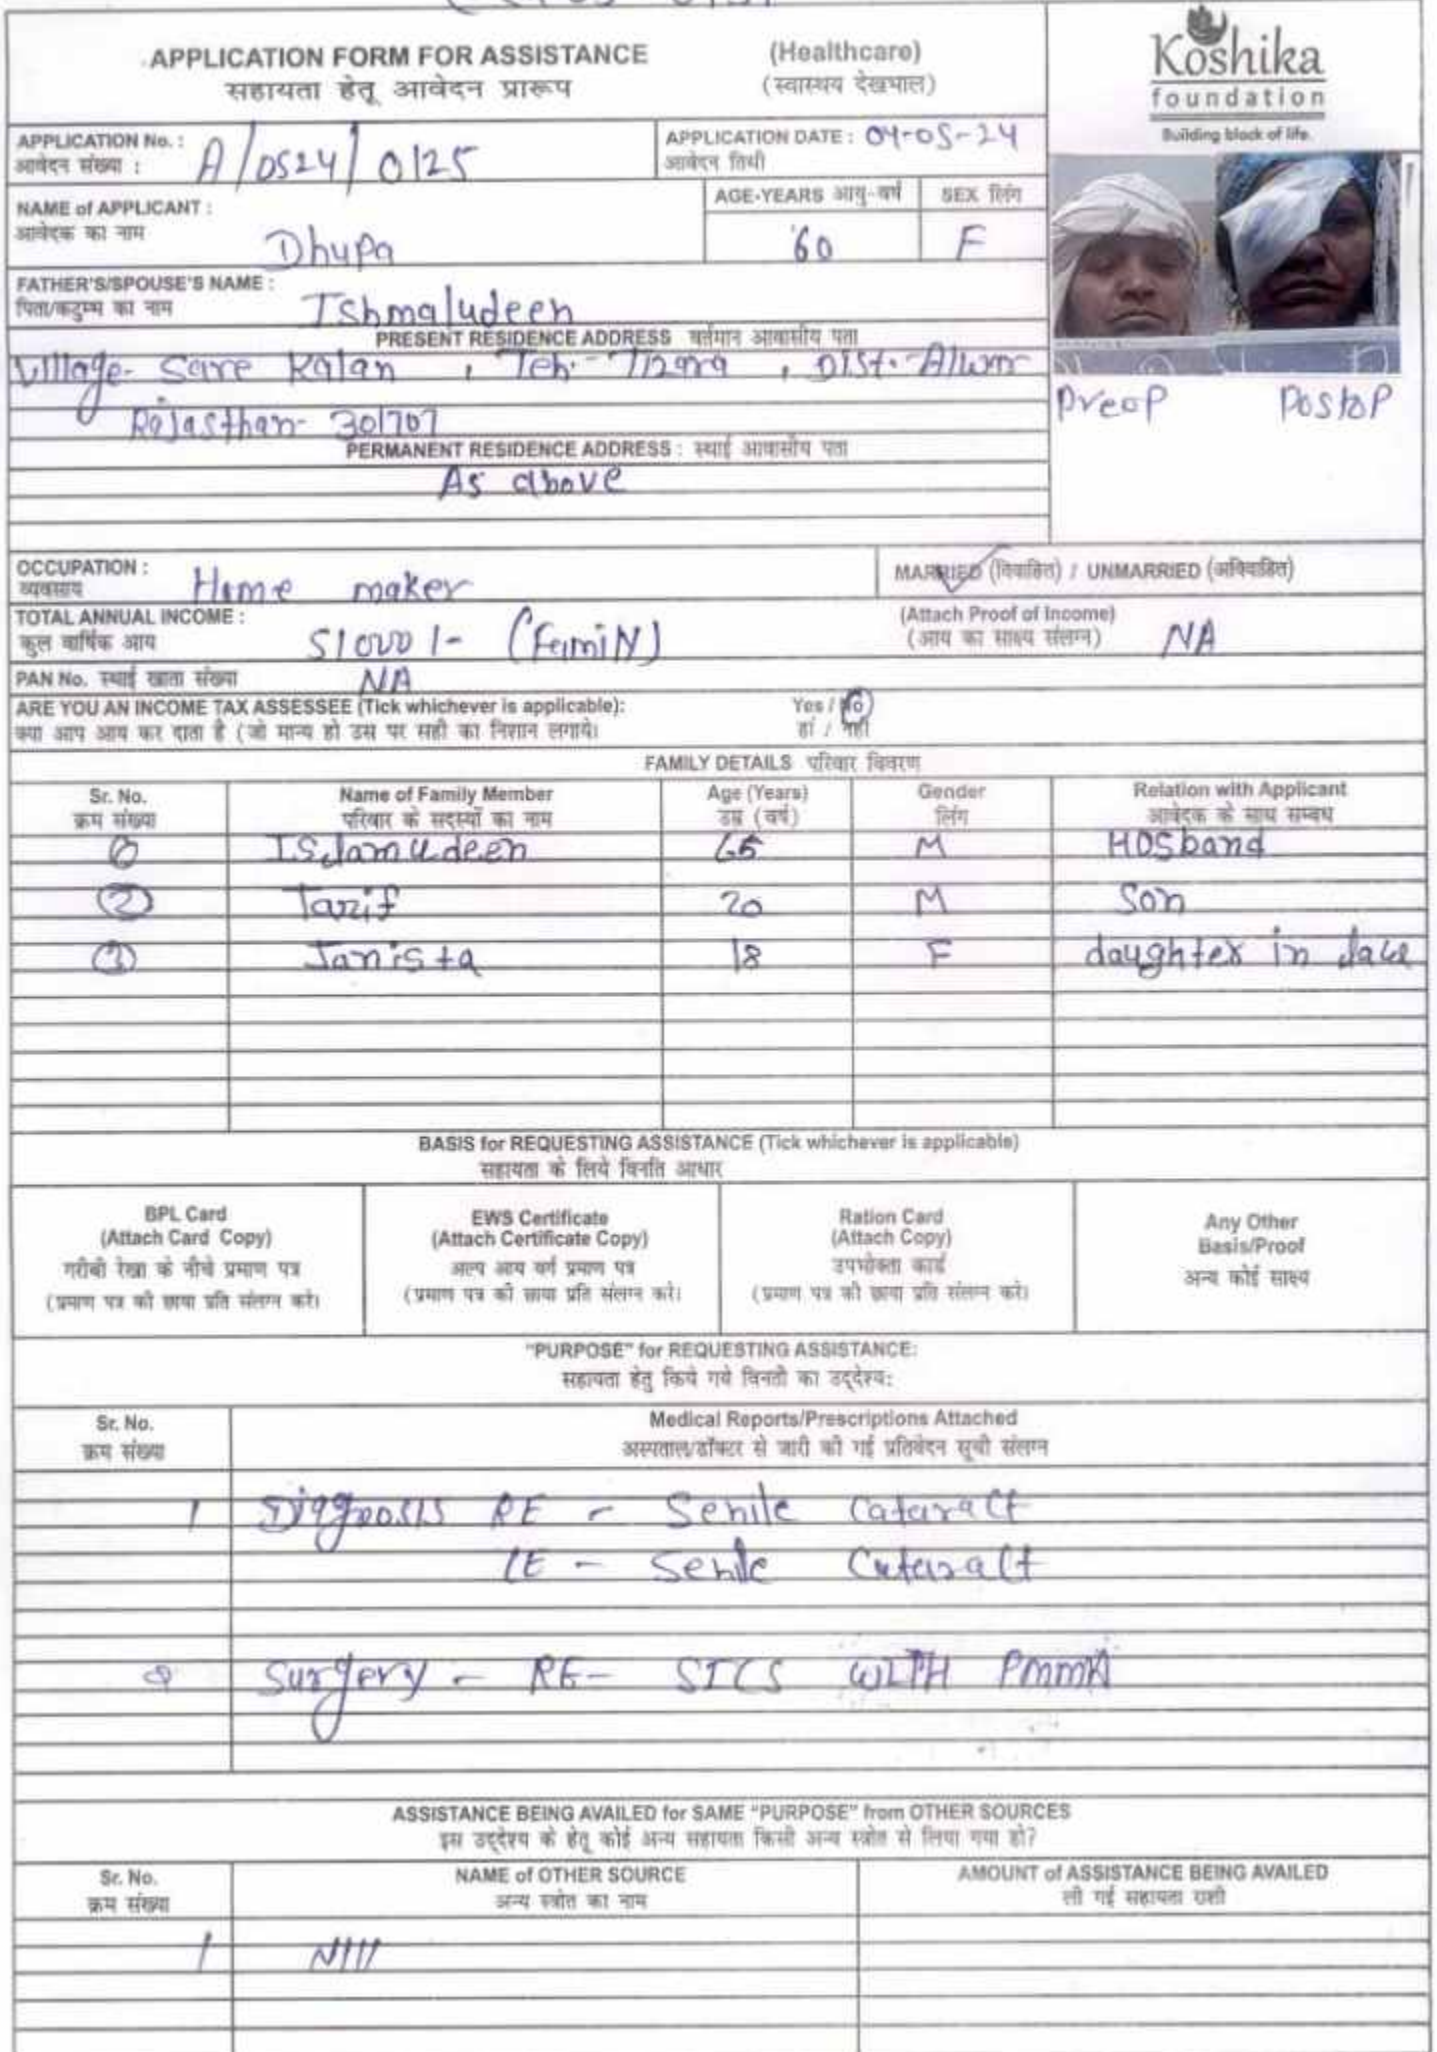 APPLICATION FORM FOR ASSISTANCE (Healthcare)
सहायता हेतू आवेदन प्रारूप (स्वास्थय देखभाल)
Koshika
foundation
Building block of life.
APPLICATION No. : A/0524/0125
आवेदन संख्या :
APPLICATION DATE : 04-05-24
आवेदन तिथी
NAME of APPLICANT : Dhupa
आवेदक का नाम
AGE-YEARS आयु-वर्ष 60
SEX लिंग F
FATHER'S/SPOUSE'S NAME : Ishmaludeen
पिता/कटुम्भ का नाम
PRESENT RESIDENCE ADDRESS वर्तमान आवासीय पता
Village- Sare Kalan , Teh- Tizara , Dist.- Alwar
Rajasthan- 301707
PERMANENT RESIDENCE ADDRESS : स्थाई आवासीय पता
As above
Preop Postop
OCCUPATION : Home maker
व्यवसाय
MARRIED (विवाहित) / UNMARRIED (अविवाहित)
TOTAL ANNUAL INCOME : 51000/- (Family)
कुल वार्षिक आय
(Attach Proof of Income) NA
(आय का साक्ष्य संलग्न)
PAN No. स्थाई खाता संख्या NA
ARE YOU AN INCOME TAX ASSESSEE (Tick whichever is applicable): Yes / No
क्या आप आय कर दाता है (जो मान्य हो उस पर सही का निशान लगाये। हां / नहीं
FAMILY DETAILS परिवार विवरण
Sr. No. Name of Family Member Age (Years) Gender Relation with Applicant
क्रम संख्या परिवार के सदस्यों का नाम उम्र (वर्ष) लिंग आवेदक के साथ सम्बध
1 Islamudeen 65 M HOSband
2 Tarif 20 M Son
3 Janista 18 F daughter in law
BASIS for REQUESTING ASSISTANCE (Tick whichever is applicable)
सहायता के लिये विनति आधार
BPL Card
(Attach Card Copy)
गरीबी रेखा के नीचे प्रमाण पत्र
(प्रमाण पत्र की छाया प्रति संलग्न करे।
EWS Certificate
(Attach Certificate Copy)
अल्प आय वर्ग प्रमाण पत्र
(प्रमाण पत्र की छाया प्रति संलग्न करे।
Ration Card
(Attach Copy)
उपभोक्ता कार्ड
(प्रमाण पत्र की छाया प्रति संलग्न करे।
Any Other
Basis/Proof
अन्य कोई साक्ष्य
"PURPOSE" for REQUESTING ASSISTANCE:
सहायता हेतु किये गये विनती का उद्देश्य:
Sr. No. Medical Reports/Prescriptions Attached
क्रम संख्या अस्पताल/डॉक्टर से जारी की गई प्रतिवेदन सूची संलग्न
1 Diagnosis RE - Senile Cataract
LE - Senile Cataract
2 Surgery - RE- SICS WITH PMMA
ASSISTANCE BEING AVAILED for SAME "PURPOSE" from OTHER SOURCES
इस उद्देश्य के हेतू कोई अन्य सहायता किसी अन्य स्त्रोत से लिया गया हो?
Sr. No. NAME of OTHER SOURCE AMOUNT of ASSISTANCE BEING AVAILED
क्रम संख्या अन्य स्त्रोत का नाम ली गई सहायता राशी
1 Nill